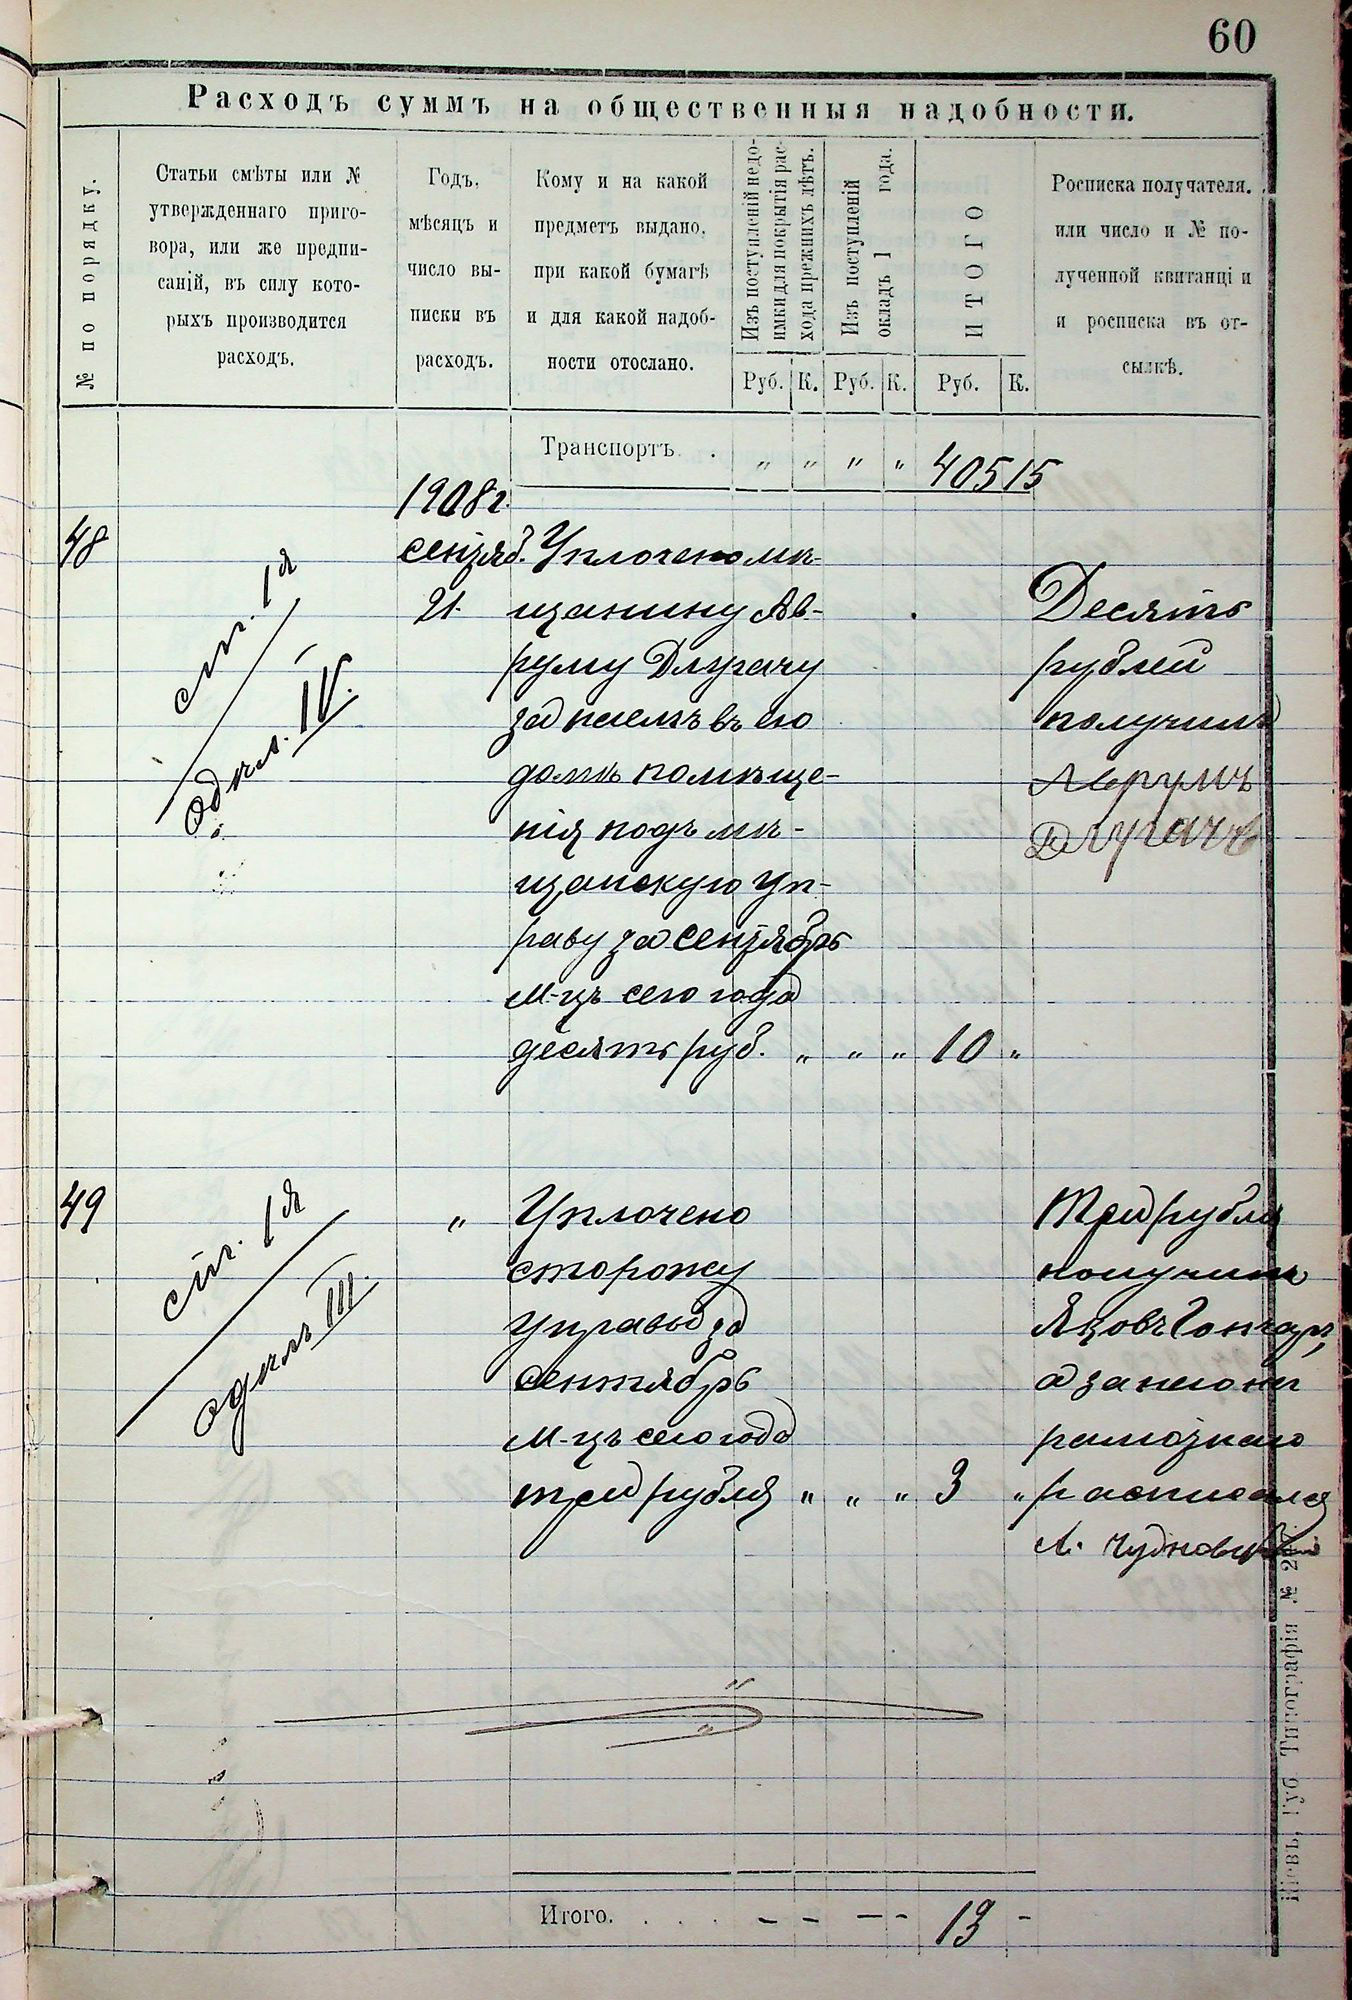 60
Расходъ суммъ на общественныя надобности.
№ по порядку.
Статьи смѣты или №
утвержденнаго приго-
вора, или же предпи-
саній, въ силу кото-
рыхъ производится
расходъ.
Годъ,
мѣсяцъ и
число вы-
писки въ
расходъ.
Кому и на какой
предметъ выдано,
при какой бумагѣ
и для какой надоб-
ности отослано.
Изъ поступленій недо-
имки для покрытія рас-
хода прежнихъ лѣтъ.
Изъ поступленій
окладъ 1 года.
ИТОГО
Росписка получателя.
или число и № по-
лученной квитанці и
и росписка въ от-
сылкѣ.
Руб. К. Руб. К. Руб. К.
Транспортъ . „ „ „ „ 405 15
1908 г.
48
ст. 1я
отдѣл. IV.
сентяб.
21.
Уплочено мѣ-
щанину Ав-
руму Длугачу
за наемъ въ его
домѣ помѣще-
нія подъ мѣ-
щанскую Уп-
раву за сентябрь
м-цъ сего года
десять руб. „ „ „ 10 „
Десять
рублей
получилъ
Аврумъ
Длугачъ
49
ст. 1я
отдѣлъ III.
„
Уплочено
сторожу
управы за
сентябрь
м-цъ сего года
три рубля „ „ „ 3 „
Три рубля
получилъ
Яковъ Гончаръ,
а за него не
грамотнаго
расписался
А. Чудновскій
Итого. . . . - - - - 13 -
Кіевъ, Губ. Типографія №